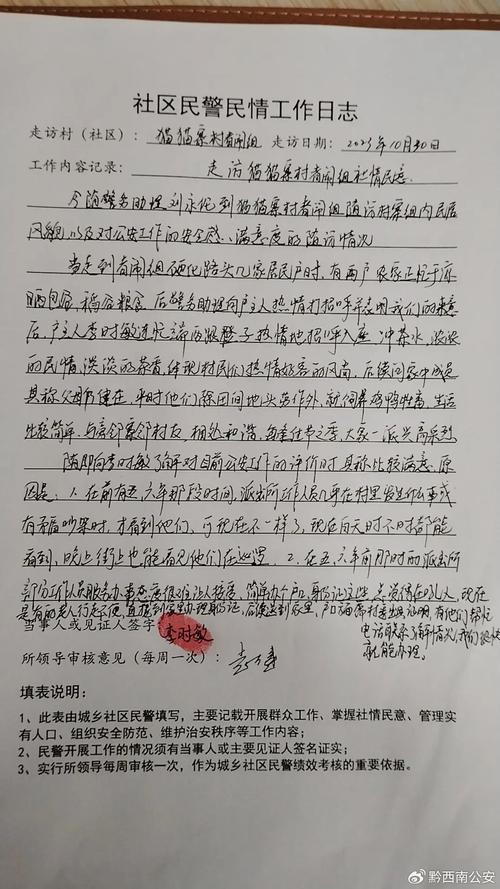 社区民警民情工作日志
走访村（社区）：猫猫寨村者闹组 走访日期：2023年10月30日
工作内容记录：走访猫猫寨村者闹组社情民意
今随警务助理刘永伦到猫猫寨村者闹组随访村寨组内民居
风貌以及对公安工作的安全感、满意度的随访情况
当走到者闹组硬化路头几家居民户时，有两户农家正忙于
晒包谷、稻谷粮食，后警务助理向户主人热情打招呼并表明我们的来意
后，户主人李时敏连忙 凳子热情地招呼入座、冲茶水，浓浓
的民情、淡淡的茶香，体现村民们热情好客的风尚，后续问家中成员
其称父母都健在，平时他们除田间地头劳作外，就饲养鸡鸭牲畜，生活
比较简单，与高邻寨邻村友相处和谐，每逢佳节之季，大家一派兴高采烈。
随即向李时敏了解对目前公安工作的评价时其称比较满意，原
因是：1、在前有五、六年那段时间，派出所工作人员几乎在村里发生什么事或
有矛盾吵架时，才看到他们，可现在不一样了，现在白天时不时都能
看到，晚上街上也能看见他们在巡逻。2、在五、六年前那时的派出所
部分工作人员服务办事态度很难让人接受，简单办个户口、身份证这些，总觉得在 人，现在
是有的老人行走不便，直接到家里办理身份证，后续送到家里，户口 村委出具证明，有他们帮忙
电话联系了解情况，我们很快
就能办理。
当事人或见证人签字：李时敏
所领导审核意见（每周一次）：
填表说明：
1、此表由城乡社区民警填写，主要记载开展群众工作、掌握社情民意、管理实
有人口、组织安全防范、维护治安秩序等工作内容；
2、民警开展工作的情况须有当事人或主要见证人签名证实；
3、实行所领导每周审核一次，作为城乡社区民警绩效考核的重要依据。
黔西南公安